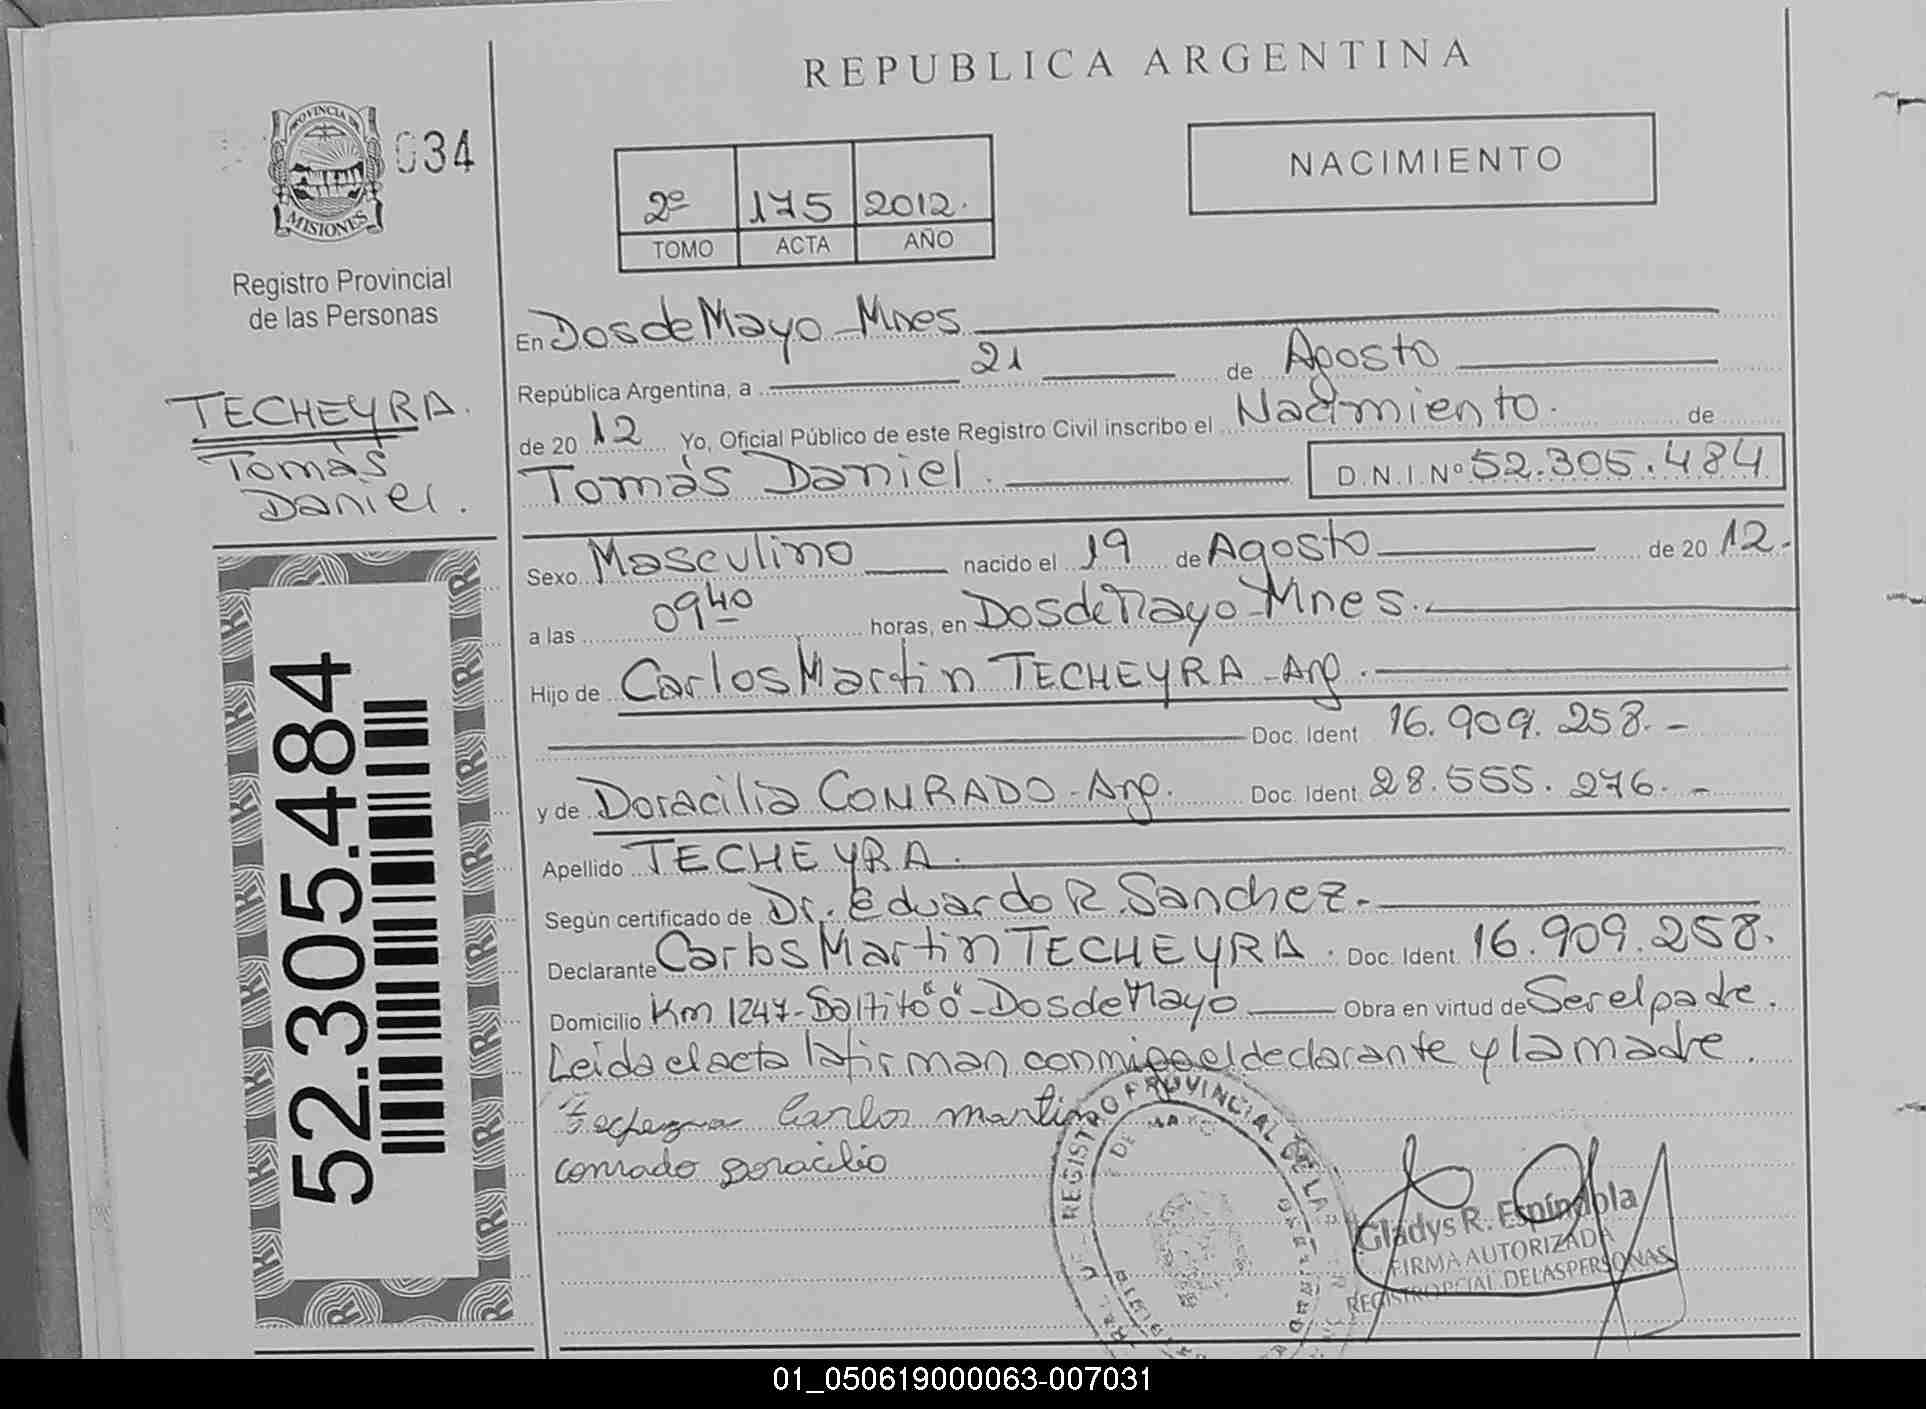 REPUBLICA ARGENTINA
PROVINCIA DE
MISIONES
034
Registro Provincial
de las Personas
TECHEYRA.
Tomás
Daniel.
52.305.484
2º 175 2012.
TOMO ACTA AÑO
NACIMIENTO
En Dos de Mayo - Mnes
República Argentina, a 21 de Agosto
de 20 12 Yo, Oficial Público de este Registro Civil inscribo el Nacimiento. de
Tomás Daniel. D.N.I.Nº 52.305.484
Sexo Masculino nacido el 19 de Agosto de 20 12.-
a las 09 40 horas, en Dos de Mayo - Mnes.
Hijo de Carlos Martin TECHEYRA - Arg.
Doc. Ident 16.909.258.-
y de Doracilia CONRADO - Arg. Doc. Ident. 28.555.276.-
Apellido TECHEYRA.
Según certificado de Dr. Eduardo R. Sanchez.-
Declarante Carlos Martin TECHEYRA. Doc. Ident. 16.909.258.
Domicilio Km 1247 - Saltito "0" - Dos de Mayo Obra en virtud de Ser el padre.
Leida el acta la firman conmigo el declarante y la madre.
Techeyra Carlos martin
conrado doracilia
REGISTRO PROVINCIAL DE LAS
DE MAYO
Gladys R. Espíndola
FIRMA AUTORIZADA
REGISTRO PCIAL. DE LAS PERSONAS
01_050619000063-007031